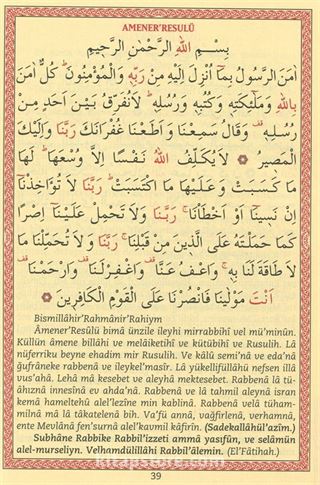 AMENER'RESULÜ
بِسْــمِ اللّٰهِ الرَّحْمٰنِ الرَّحِيمِ
اٰمَنَ الرَّسُولُ بِمَٓا اُنْزِلَ اِلَيْهِ مِنْ رَبِّهٖ وَالْمُؤْمِنُونَ ۜ كُلٌّ اٰمَنَ
بِاللّٰهِ وَمَلٰٓئِكَتِهٖ وَكُتُبِهٖ وَرُسُلِهٖ ۜ لَانُفَرِّقُ بَيْنَ اَحَدٍ مِنْ
رُسُلِهٖ ۚ وَقَالُ سَمِعْنَا وَ اَطَعْنَا غُفْرَانَكَ رَبَّنَا وَاِلَيْكَ
الْمَصِيرُ ۞ لَا يُكَلِّفُ اللّٰهُ نَفْسًا اِلَّا وُسْعَهَا ۜ لَهَا
مَا كَسَبَتْ وَعَلَيْهَا مَا اكْتَسَبَتْ ۜ رَبَّنَا لَا تُؤَاخِذْنَٓا
اِنْ نَسِينَٓا اَوْ اَخْطَاْنَا ۚ رَبَّنَا وَلَا تَحْمِلْ عَلَيْنَٓا اِصْرًا
كَمَا حَمَلْتَهُ عَلَى الَّذِينَ مِنْ قَبْلِنَا ۚ رَبَّنَا وَ لَا تُحَمِّلْنَا مَا
لَا طَاقَةَ لَنَا بِهٖ ۚ وَاعْفُ عَنَّا ۠ وَاغْفِرْلَنَا ۠ وَارْحَمْنَا ۠
اَنْتَ مَوْلٰينَا فَانْصُرْنَا عَلَى الْقَوْمِ الْكَافِرِينَ ۞
Bismillâhir'Rahmânir'Rahiym
Âmener'Resûlü bimâ ünzile ileyhi mirrabbihî vel mü'minûn.
Küllün âmene billâhi ve melâiketihî ve kütübihî ve Rusulih. Lâ
nüferriku beyne ehadim mir Rusulih. Ve kâlû semi'nâ ve eda'nâ
ğufrâneke rabbenâ ve ileykel'masîr. Lâ yükellifüllâhü nefsen illâ
vüs'ahâ. Lehâ mâ kesebet ve aleyhâ mektesebet. Rabbenâ lâ tü-
hıznâ innesînâ ev ahda'nâ. Rabbenâ ve lâ tahmil aleynâ isran
kemâ hameltehû alel'lezîne min kablinâ. Rabbenâ velâ tüham-
milnâ mâ lâ tâkatelenâ bih. Va'fü annâ, vağfirlenâ, verhamnâ,
ente Mevlânâ fen'surnâ alel'kavmil kâfirîn. (Sadekallâhül'azîm.)
Subhâne Rabbike Rabbil'izzeti ammâ yasıfûn, ve selâmün
alel-murseliyn. Velhamdülillâhi Rabbil'âlemin. (El'Fâtihah.)
kitapstore.com
39